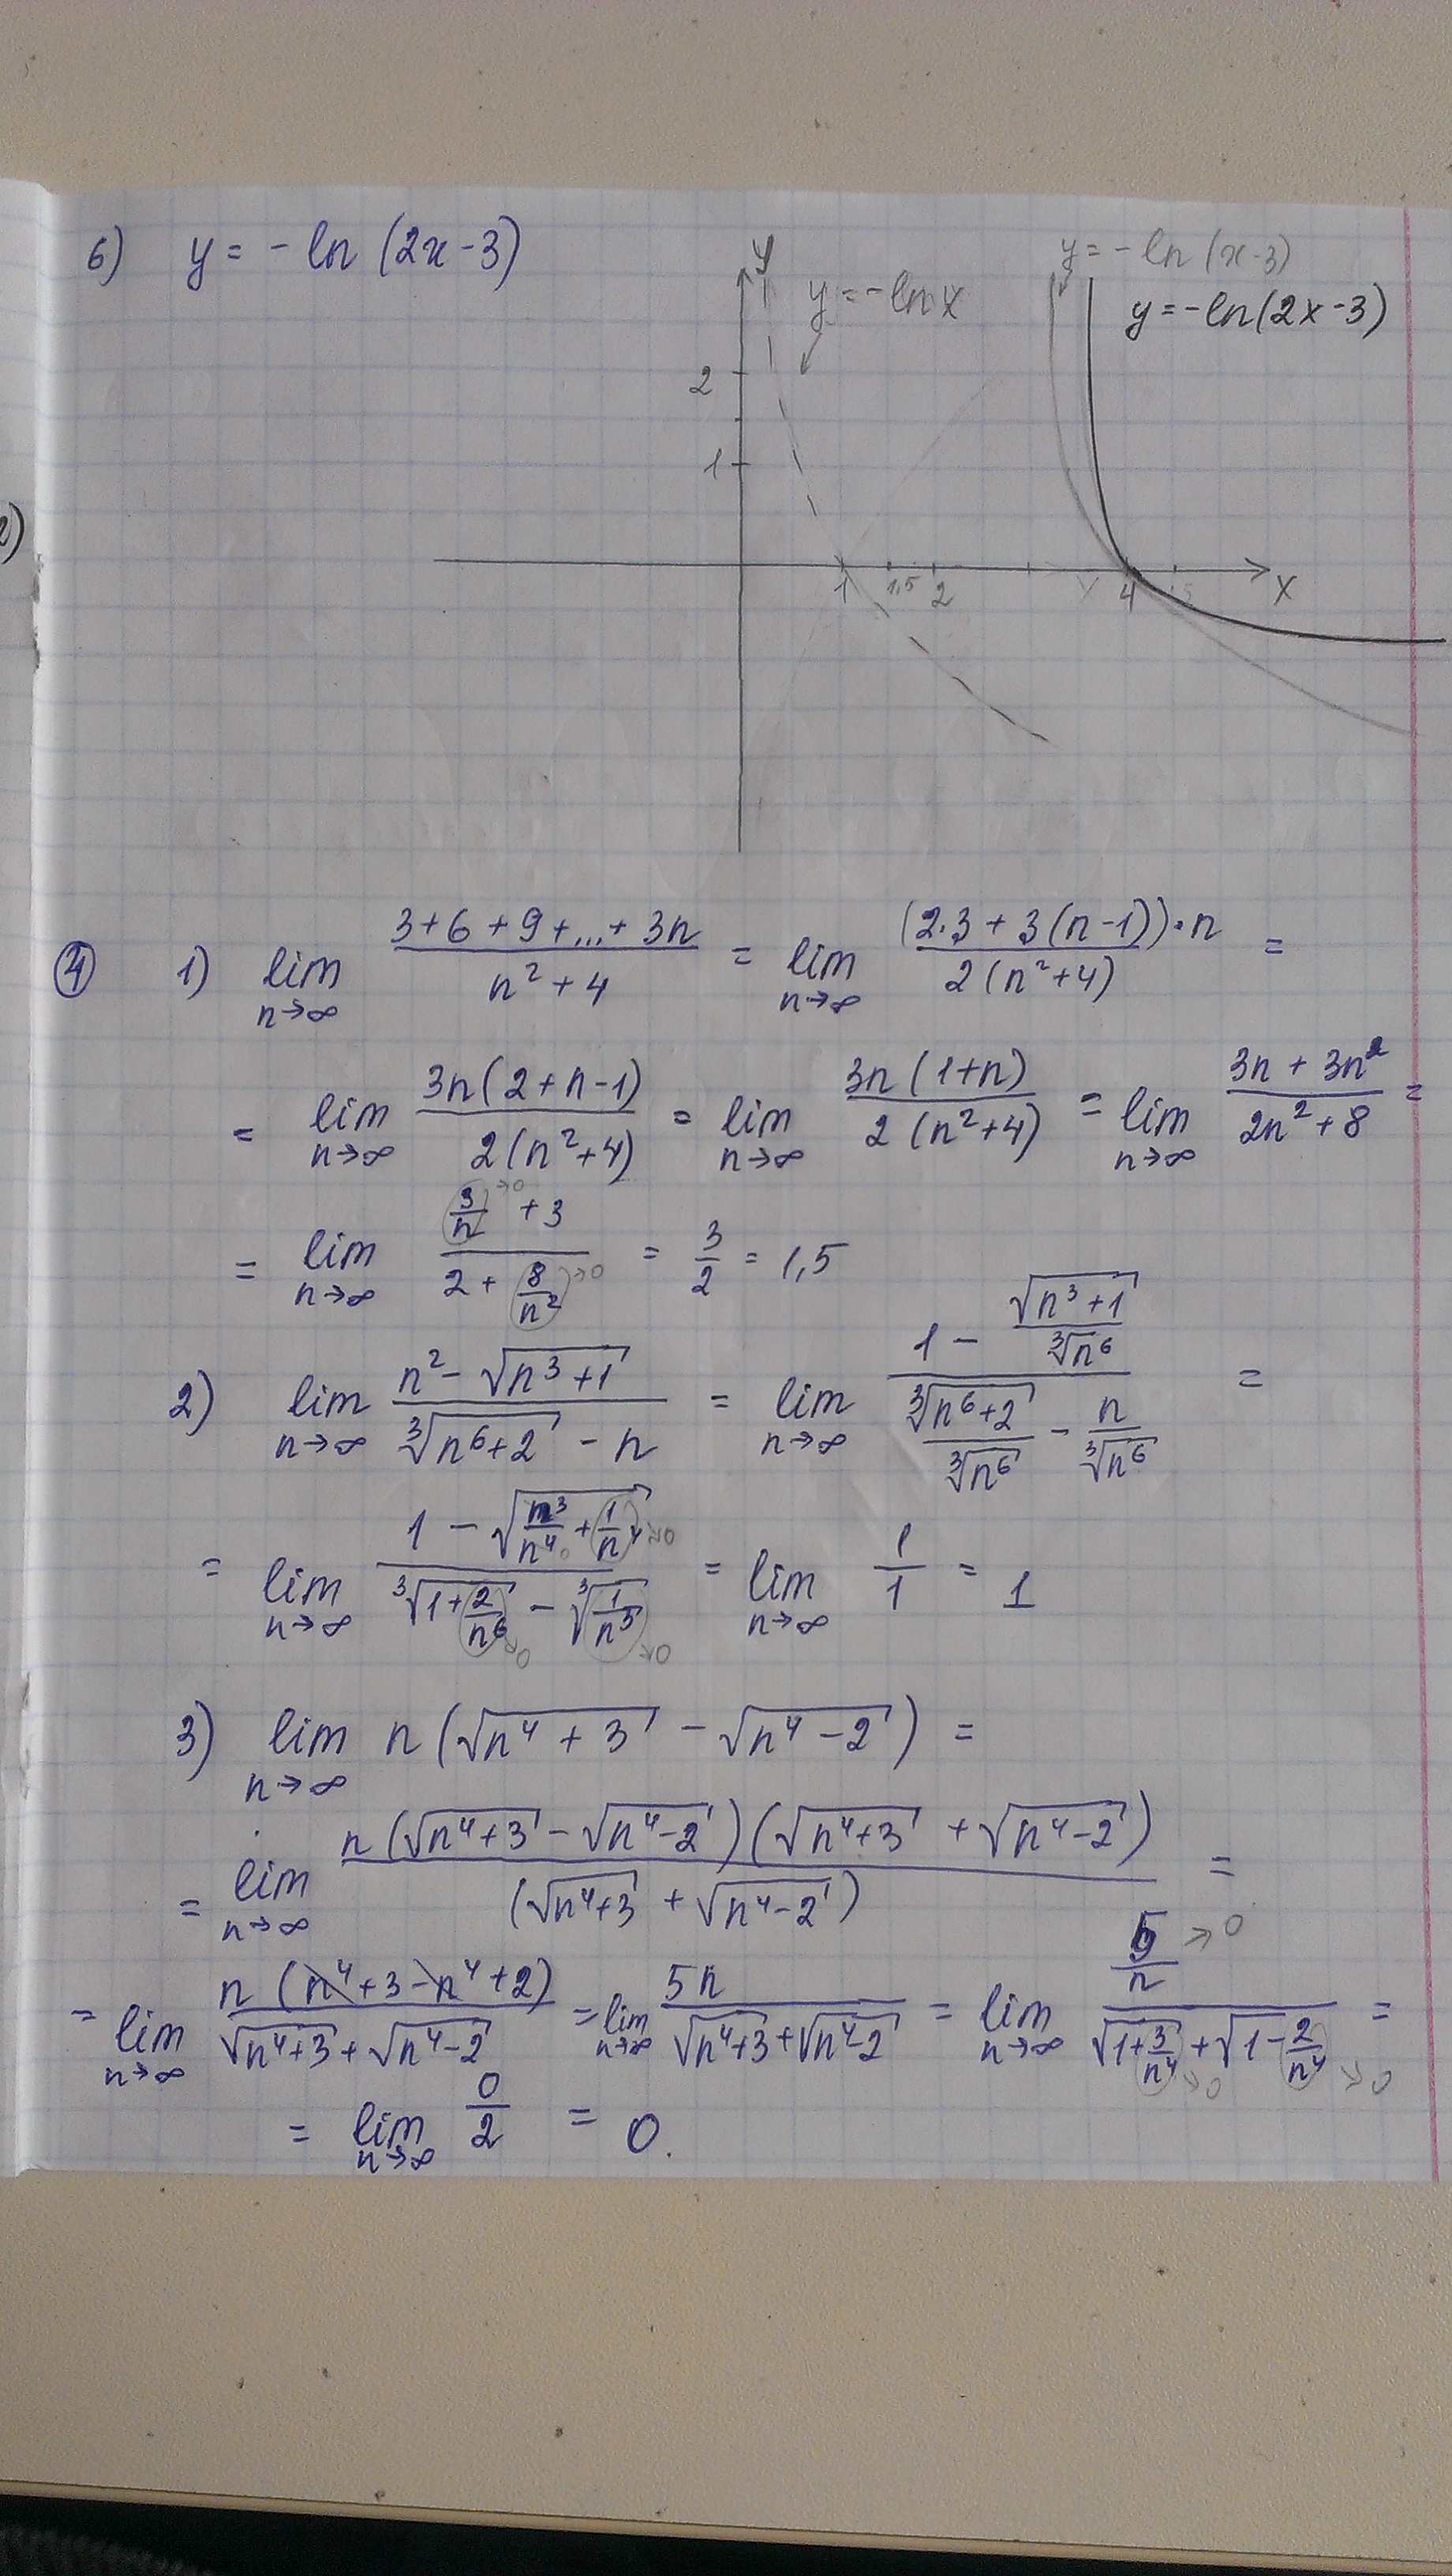 б) y = -ln (2x-3)
y = -ln (x-3)
y = -ln x
y = -ln(2x-3)
y
2
1
1 1,5 2 4 x
④ 1) lim n→∞ (3+6+9+...+3n)/(n²+4) = lim n→∞ ((2·3+3(n-1))·n)/(2(n²+4)) =
= lim n→∞ (3n(2+n-1))/(2(n²+4)) = lim n→∞ (3n(1+n))/(2(n²+4)) = lim n→∞ (3n+3n²)/(2n²+8) =
= lim n→∞ (3/n →0 + 3)/(2 + 8/n² →0) = 3/2 = 1,5
2) lim n→∞ (n² - √(n³+1))/(∛(n⁶+2) - n) = lim n→∞ (1 - √(n³+1)/∛n⁶)/(∛(n⁶+2)/∛n⁶ - n/∛n⁶) =
= lim n→∞ (1 - √(n³/n⁴ + 1/n⁴ →0))/(∛(1+2/n⁶ →0) - ∛(1/n³ →0)) = lim n→∞ 1/1 = 1
3) lim n→∞ n(√(n⁴+3) - √(n⁴-2)) =
= lim n→∞ (n(√(n⁴+3) - √(n⁴-2))(√(n⁴+3) + √(n⁴-2)))/((√(n⁴+3) + √(n⁴-2))) =
= lim n→∞ (n(n⁴+3-n⁴+2))/(√(n⁴+3)+√(n⁴-2)) = lim n→∞ 5n/(√(n⁴+3)+√(n⁴-2)) = lim n→∞ (5/n →0)/(√(1+3/n⁴ →0)+√(1-2/n⁴ →0)) =
= lim n→∞ 0/2 = 0.